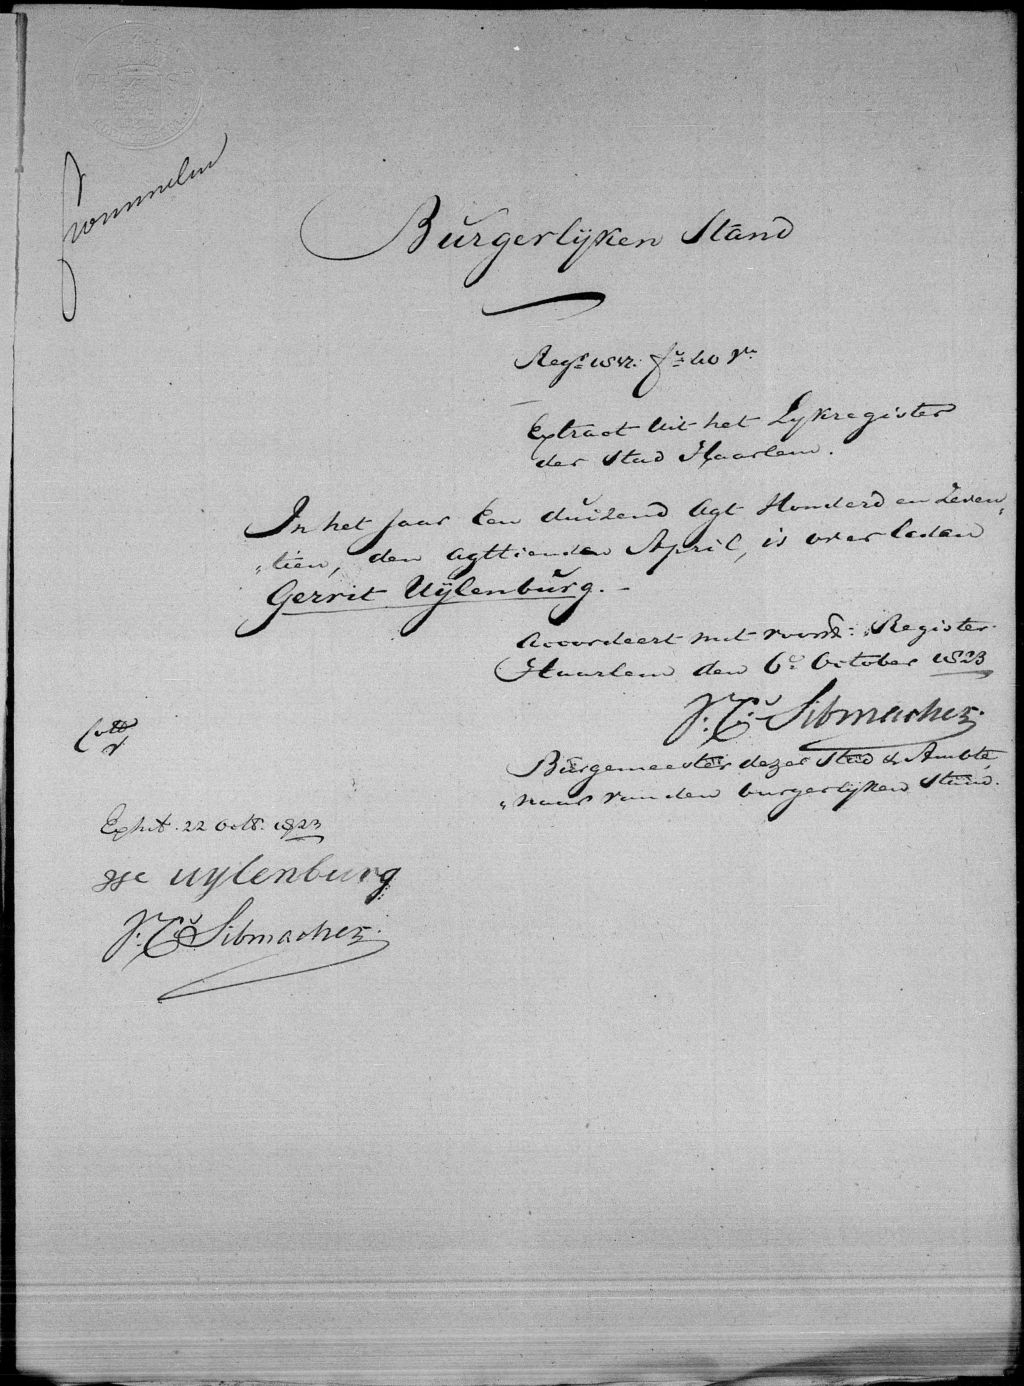 frommelen
Burgerlyken Stand
Regr. 1817. fo. 40 vo.
Extract uit het Lykregister
der Stad Haarlem.
In het Jaar Een duizend Agt Honderd en Zeven„
„tien, den agttienden April, is overleden
Gerrit Uylenburg. –
Accordeert met voorsz: Register.
Haarlem den 6e October 1823
Sibmacher.
Burgemeester dezer Stad & Ambte„
„naar van den burgerlyken Stand.
Coll
Exhit. 22 Octr. 1823
uylenburg
Sibmacher.